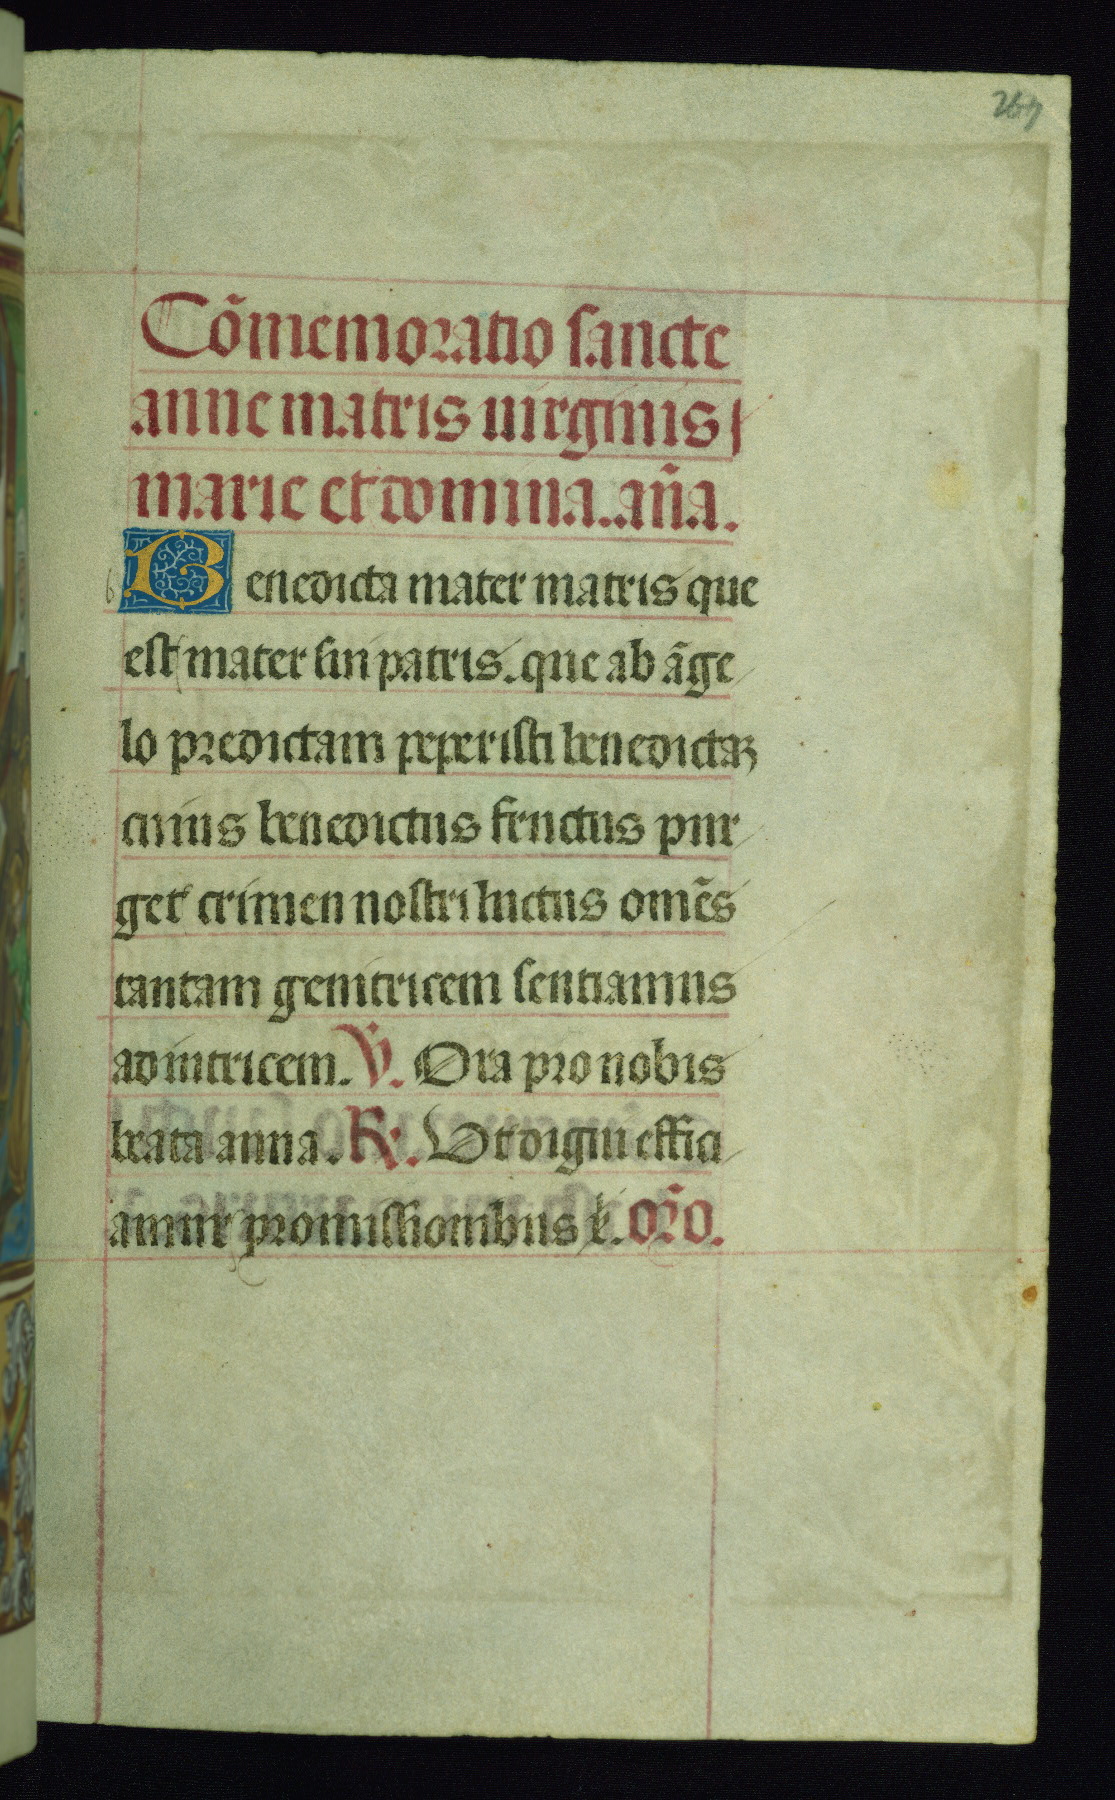 267
Cõmemoratio sancte
anne matris uirginis
marie et domina. añ.a.
Benedicta mater matris que
est mater sui patris. que ab ãge
lo predictam peperisti benedictaʒ
cuius benedictus fructus pur
get crimen nostri luctus omẽs
tantam genitricem sentiamus
adiutricem. V̇. Ora pro nobis
beata anna. R̷. Vt digni effici
amur promissionibus x̄. or̃o.